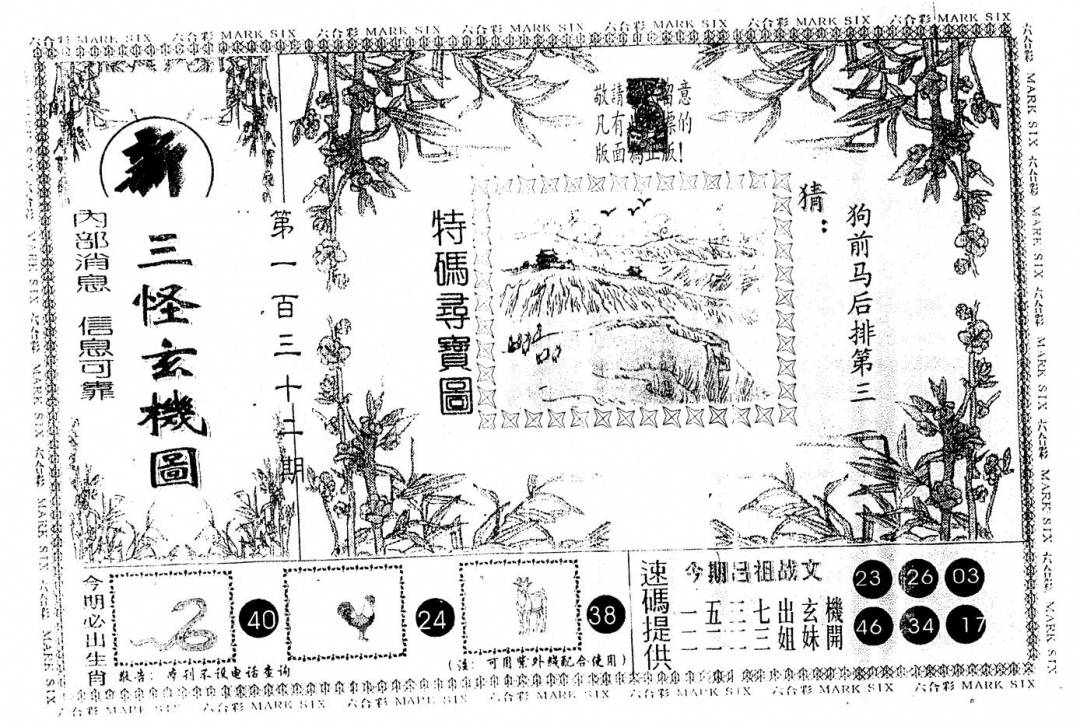 六合彩 MARK SIX 六合彩 MARK SIX 六合彩 MARK SIX 六合彩 MARK SIX 六合彩 MARK SIX 六合彩 MARK SIX 六合彩 MARK SIX
新
三怪玄機圖
內部消息 信息可靠
第一百三十二期
敬請 留意
凡有 的
版面為正版!
特碼尋寶圖
猜:
狗前马后排第三
今明必出生肖
40
24
38
敬告: 本刊不设电话查询
(注: 可用紫外线配合使用)
速碼提供
今期吕祖战文
一五三七出玄機
一一二三姐妹開
23 26 03
46 34 17
六合彩 MARK SIX 六合彩 MARK SIX 六合彩 MARK SIX 六合彩 MARK SIX 六合彩 MARK SIX 六合彩 MARK SIX 六合彩 MARK SIX